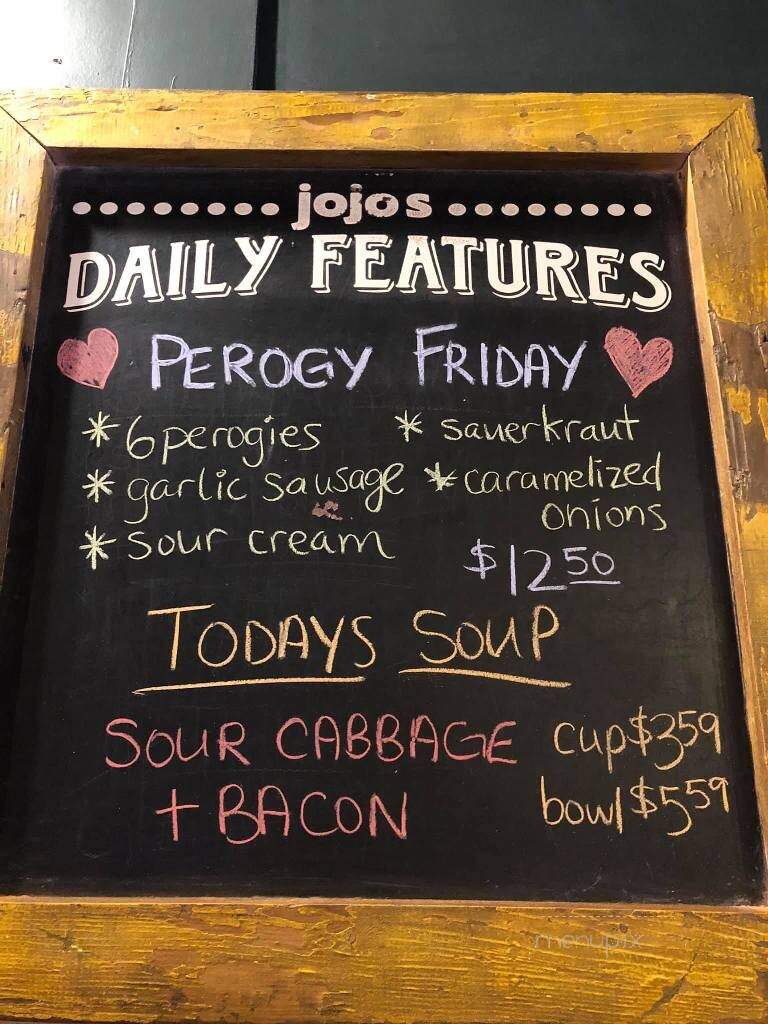 jojos
DAILY FEATURES
PEROGY FRIDAY
* 6 perogies
* garlic sausage
* sour cream
* sauerkraut
* caramelized
onions
$12 50
TODAYS SOUP
SOUR CABBAGE
+ BACON
cup $3 59
bowl $5 59
menupix